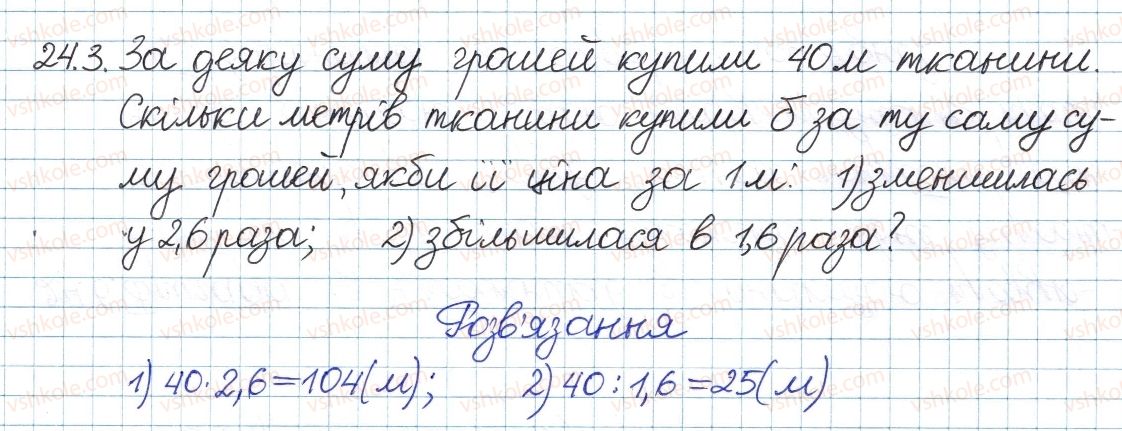 24.3. За деяку суму грошей купили 40 м тканини.
Скільки метрів тканини купили б за ту саму су-
му грошей, якби її ціна за 1 м: 1) зменшилась
у 2,6 раза; 2) збільшилася в 1,6 раза?
Розв'язання
1) 40·2,6=104(м); 2) 40:1,6=25(м)